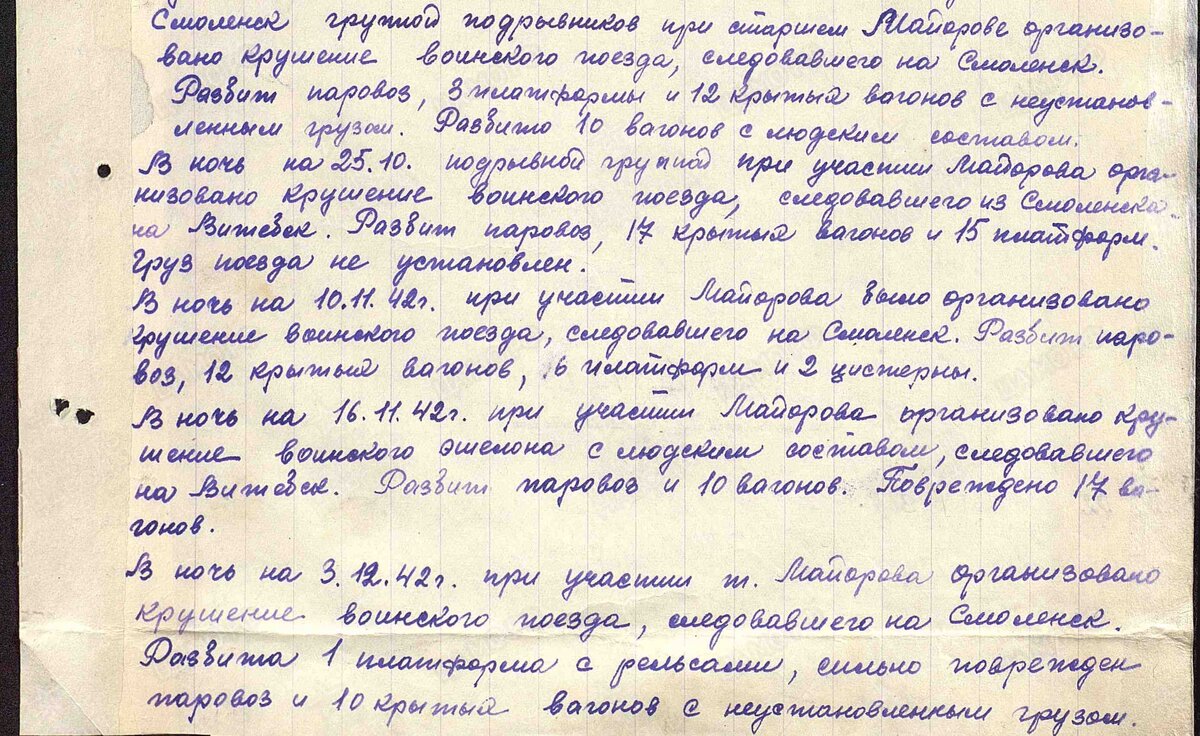 Смоленск группой подрывников при старшем Майорове организо-
вано крушение воинского поезда, следовавшего на Смоленск.
Разбит паровоз, 3 платформы и 12 крытых вагонов с неустанов-
ленным грузом. Разбито 10 вагонов с людским составом.
В ночь на 25.10. подрывной группой при участии Майорова орга-
низовано крушение воинского поезда, следовавшего из Смоленска
на Витебск. Разбит паровоз, 17 крытых вагонов и 15 платформ.
Груз поезда не установлен.
В ночь на 10.11.42г. при участии Майорова было организовано
крушение воинского поезда, следовавшего на Смоленск. Разбит паро-
воз, 12 крытых вагонов, 6 платформ и 2 цистерны.
В ночь на 16.11.42г. при участии Майорова организовано кру-
шение воинского эшелона с людским составом, следовавшего
на Витебск. Разбит паровоз и 10 вагонов. Повреждено 17 ва-
гонов.
В ночь на 3.12.42г. при участии т. Майорова организовано
крушение воинского поезда, следовавшего на Смоленск.
Разбита 1 платформа с рельсами, сильно поврежден
паровоз и 10 крытых вагонов с неустановленным грузом.